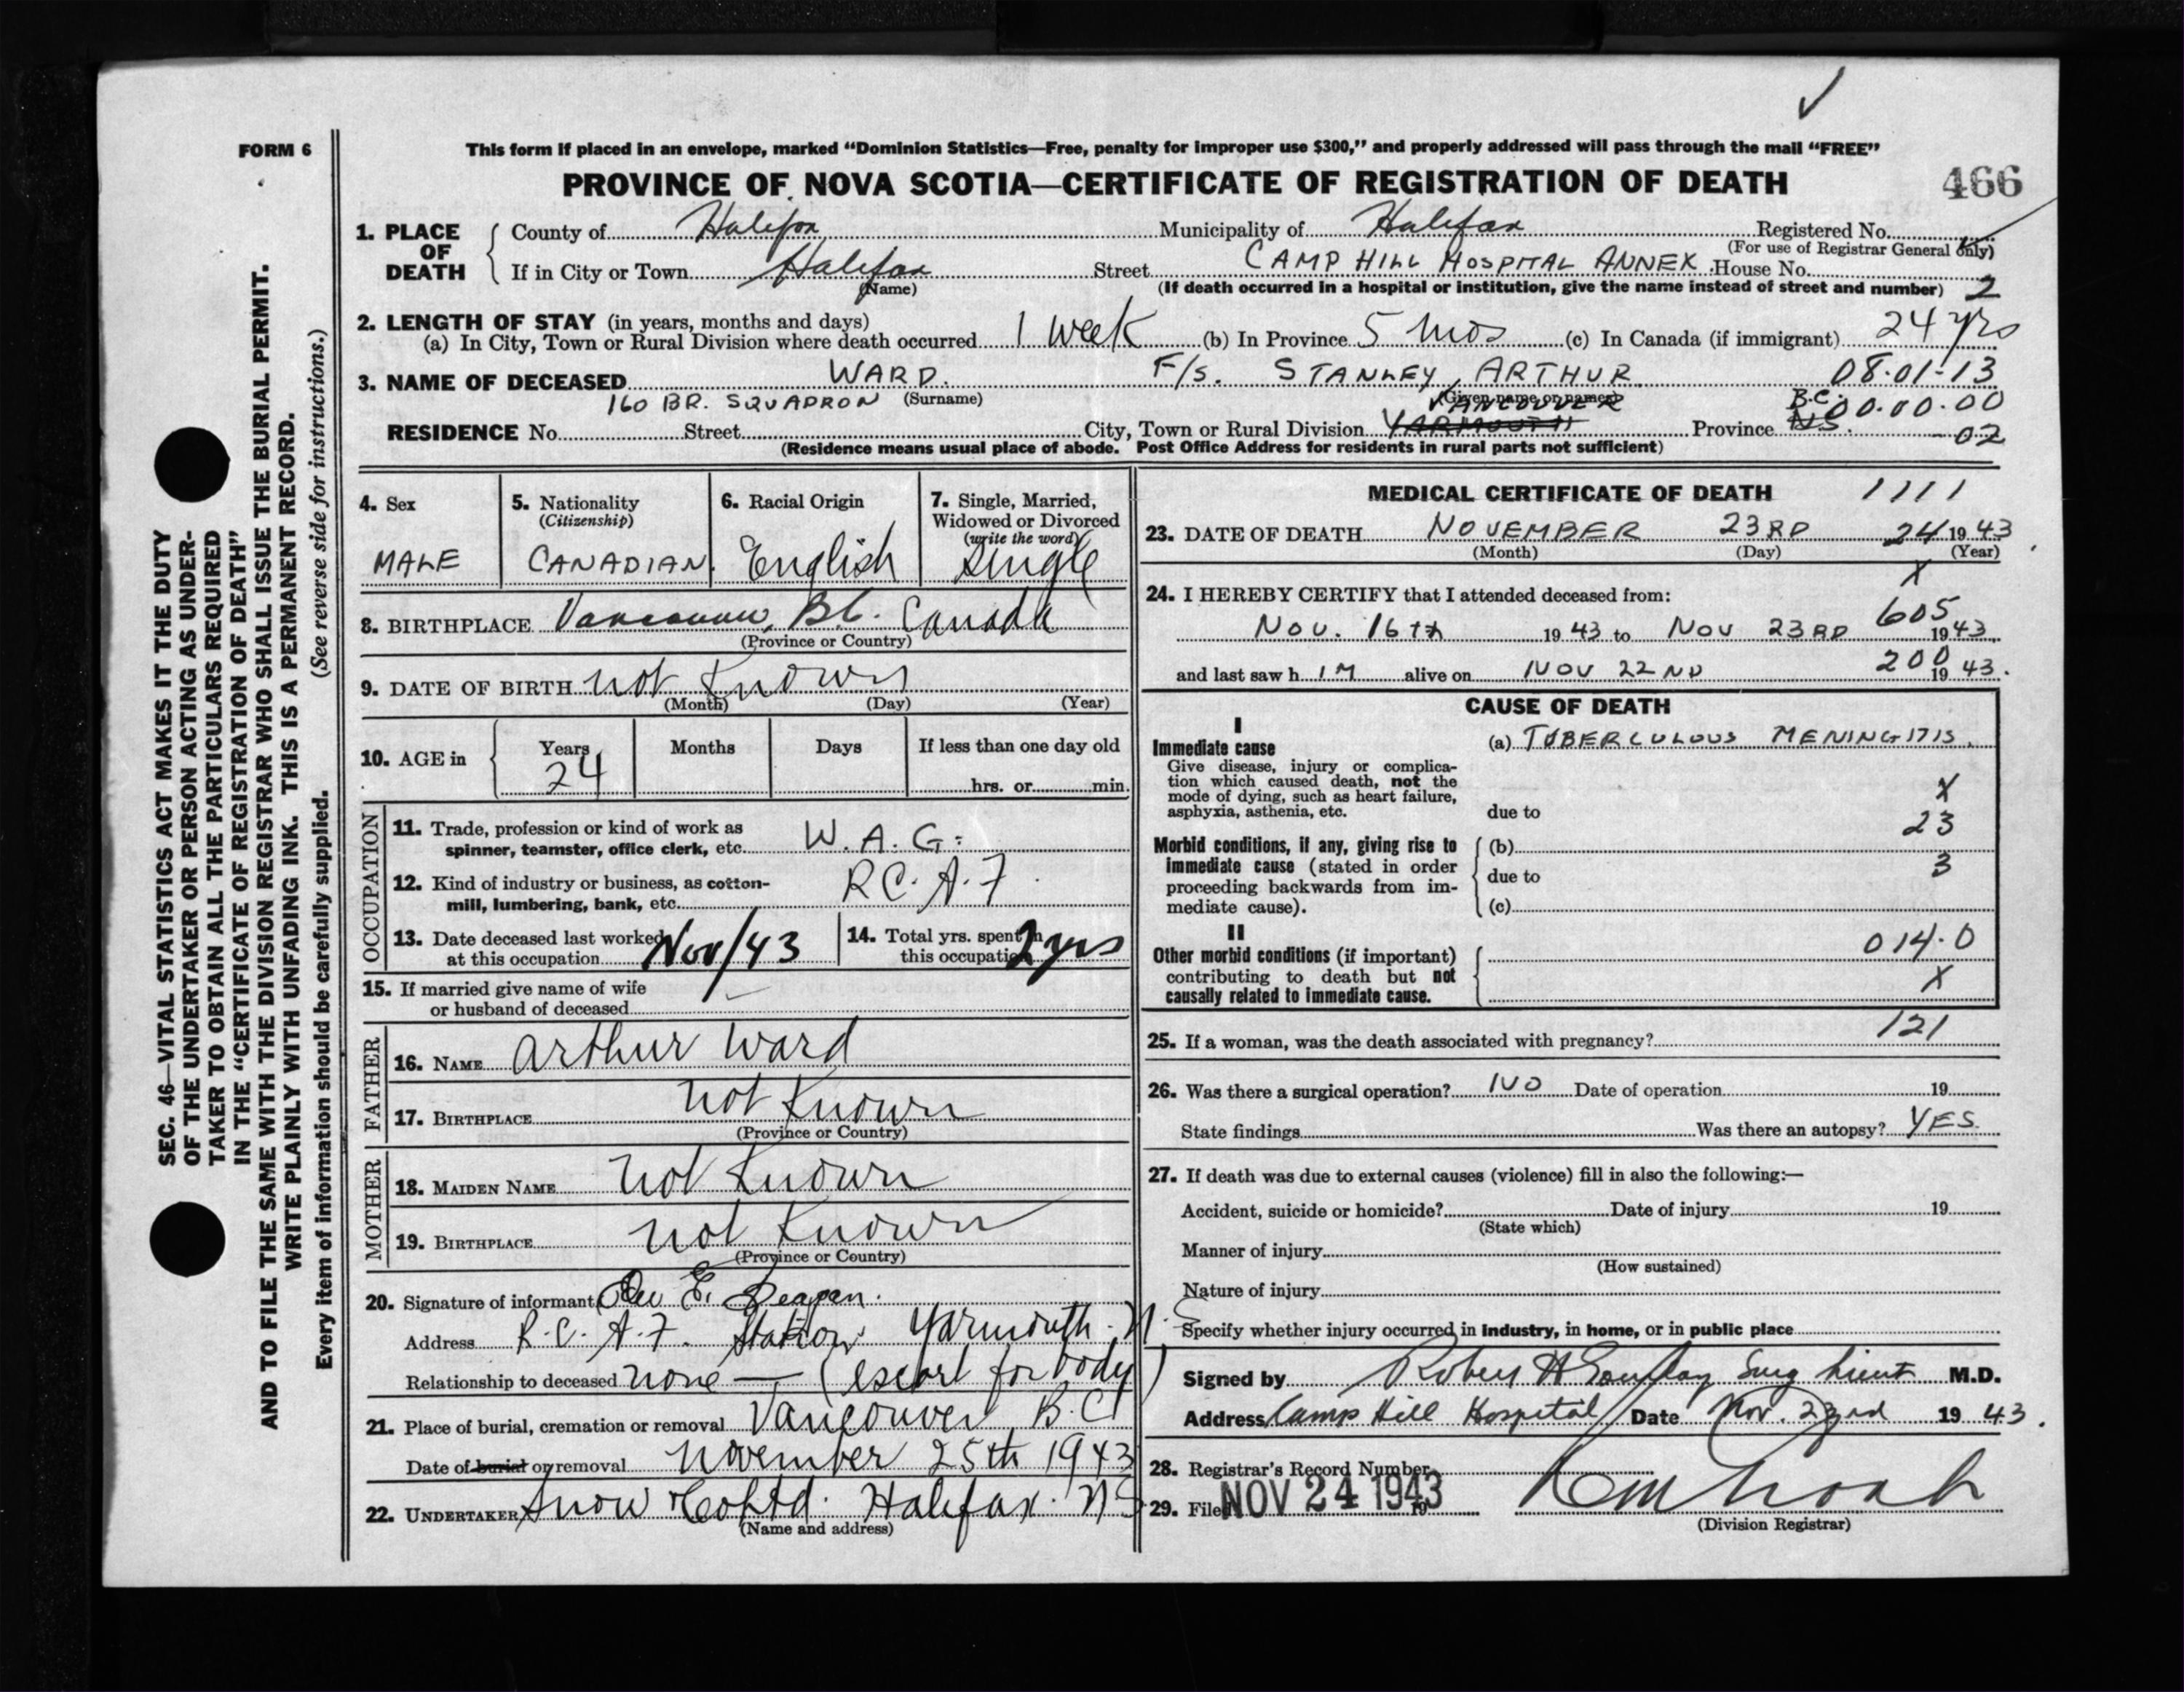 FORM 6
This form if placed in an envelope, marked “Dominion Statistics—Free, penalty for improper use $300,” and properly addressed will pass through the mail “FREE”
PROVINCE OF NOVA SCOTIA—CERTIFICATE OF REGISTRATION OF DEATH
466
1. PLACE OF DEATH
County of Halifax Municipality of Halifax Registered No.
(For use of Registrar General only)
If in City or Town Halifax Street CAMP HILL HOSPITAL ANNEX House No.
(Name) (If death occurred in a hospital or institution, give the name instead of street and number) 2
2. LENGTH OF STAY (in years, months and days)
(a) In City, Town or Rural Division where death occurred 1 week (b) In Province 5 mos (c) In Canada (if immigrant) 24 yrs
3. NAME OF DECEASED WARD. F/S. STANLEY, ARTHUR 08.01-13
160 BR. SQUADRON (Surname) (Given name or names) VANCOUVER B.C. 00.00.00
RESIDENCE No. Street City, Town or Rural Division YARMOUTH Province N.S. -02
(Residence means usual place of abode. Post Office Address for residents in rural parts not sufficient)
4. Sex
MALE
5. Nationality
(Citizenship)
CANADIAN.
6. Racial Origin
English
7. Single, Married,
Widowed or Divorced
(write the word)
Single
8. BIRTHPLACE Vancouver, B.C. Canada
(Province or Country)
9. DATE OF BIRTH not known
(Month) (Day) (Year)
10. AGE in
Years Months Days If less than one day old
24 hrs. or min.
OCCUPATION
11. Trade, profession or kind of work as
spinner, teamster, office clerk, etc. W. A. G.
12. Kind of industry or business, as cotton-
mill, lumbering, bank, etc. R.C.A.F.
13. Date deceased last worked
at this occupation Nov/43
14. Total yrs. spent in
this occupation 2 yrs
15. If married give name of wife
or husband of deceased
FATHER
16. NAME Arthur Ward
17. BIRTHPLACE not known
(Province or Country)
MOTHER
18. MAIDEN NAME not known
19. BIRTHPLACE not known
(Province or Country)
20. Signature of informant E.
Address R.C.A.F. Station Yarmouth. N.S
Relationship to deceased none — (escort for body)
21. Place of burial, cremation or removal Vancouver B.C.
Date of burial or removal November 25th 1943
22. UNDERTAKER Snow & Co Ltd. Halifax. NS
(Name and address)
MEDICAL CERTIFICATE OF DEATH 1111
23. DATE OF DEATH NOVEMBER 23RD 24 1943
(Month) (Day) (Year)
X
24. I HEREBY CERTIFY that I attended deceased from:
605
NOV. 16TH 1943 to NOV 23RD 1943
200
and last saw h IM alive on NOV 22ND 1943.
CAUSE OF DEATH
I
Immediate cause
Give disease, injury or complica-
tion which caused death, not the
mode of dying, such as heart failure,
asphyxia, asthenia, etc.
(a) TUBERCULOUS MENINGITIS.
X
due to
23
Morbid conditions, if any, giving rise to
immediate cause (stated in order
proceeding backwards from im-
mediate cause).
(b)
3
due to
(c)
II
Other morbid conditions (if important)
contributing to death but not
causally related to immediate cause.
014.0
X
121
25. If a woman, was the death associated with pregnancy?
26. Was there a surgical operation? NO Date of operation 19
State findings Was there an autopsy? YES.
27. If death was due to external causes (violence) fill in also the following:—
Accident, suicide or homicide? Date of injury 19
(State which)
Manner of injury
(How sustained)
Nature of injury
Specify whether injury occurred in industry, in home, or in public place
Signed by Robert H Surg Lieut M.D.
Address Camp Hill Hospital Date Nov. 23rd 1943.
28. Registrar's Record Number
29. Filed NOV 24 1943 19
(Division Registrar)
SEC. 46—VITAL STATISTICS ACT MAKES IT THE DUTY
OF THE UNDERTAKER OR PERSON ACTING AS UNDER-
TAKER TO OBTAIN ALL THE PARTICULARS REQUIRED
IN THE “CERTIFICATE OF REGISTRATION OF DEATH”
AND TO FILE THE SAME WITH THE DIVISION REGISTRAR WHO SHALL ISSUE THE BURIAL PERMIT.
WRITE PLAINLY WITH UNFADING INK. THIS IS A PERMANENT RECORD.
Every item of information should be carefully supplied. (See reverse side for instructions.)